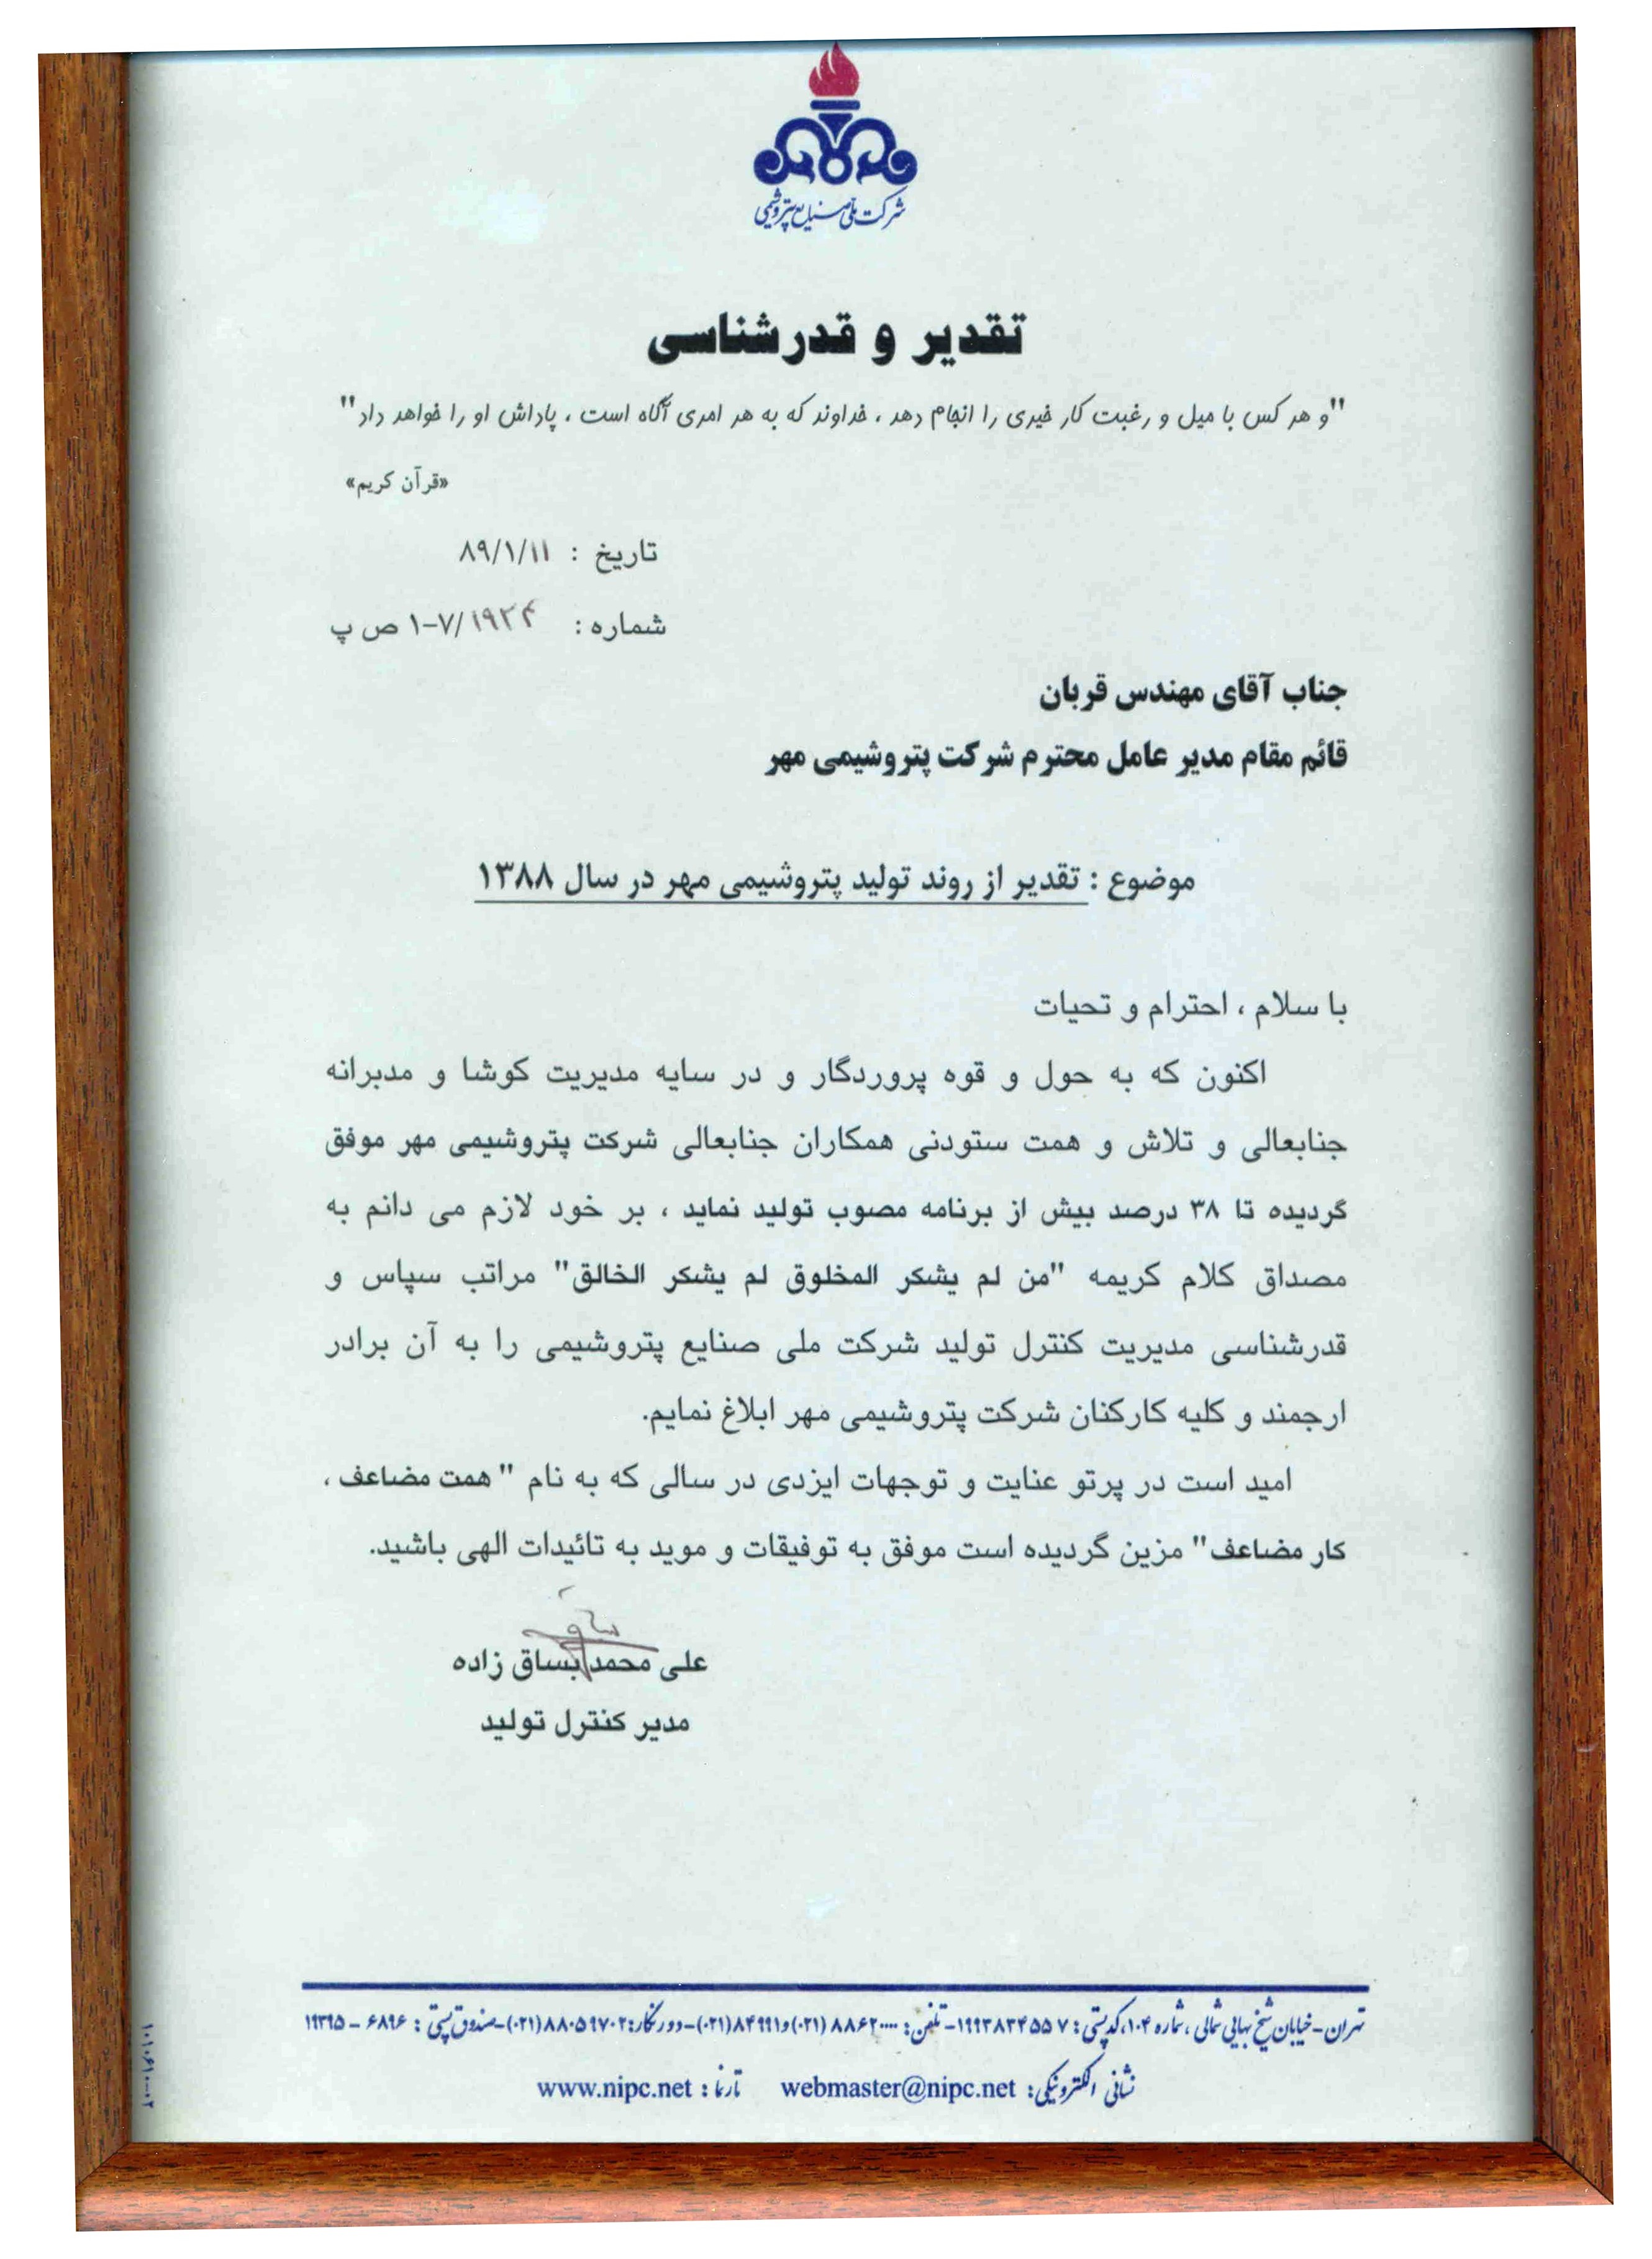 شرکت ملی صنایع پتروشیمی
تقدیر و قدرشناسی
"و هر کس با میل و رغبت کار خیری را انجام دهد ، خداوند که به هر امری آگاه است ، پاداش او را خواهد داد"
«قرآن کریم»
تاریخ : ۸۹/۱/۱۱
شماره : ۱-۷/۱۹۲۴ ص پ
جناب آقای مهندس قربان
قائم مقام مدیر عامل محترم شرکت پتروشیمی مهر
موضوع : تقدیر از روند تولید پتروشیمی مهر در سال ۱۳۸۸
با سلام ، احترام و تحیات
اکنون که به حول و قوه پروردگار و در سایه مدیریت کوشا و مدبرانه
جنابعالی و تلاش و همت ستودنی همکاران جنابعالی شرکت پتروشیمی مهر موفق
گردیده تا ۳۸ درصد بیش از برنامه مصوب تولید نماید ، بر خود لازم می دانم به
مصداق کلام کریمه "من لم یشکر المخلوق لم یشکر الخالق" مراتب سپاس و
قدرشناسی مدیریت کنترل تولید شرکت ملی صنایع پتروشیمی را به آن برادر
ارجمند و کلیه کارکنان شرکت پتروشیمی مهر ابلاغ نمایم.
امید است در پرتو عنایت و توجهات ایزدی در سالی که به نام " همت مضاعف ،
کار مضاعف" مزین گردیده است موفق به توفیقات و موید به تائیدات الهی باشید.
علی محمد بساق زاده
مدیر کنترل تولید
تهران-خیابان شیخ بهایی شمالی ، شماره ۱۰۴، کدپستی : ۱۹۹۳۸۳۴۵۵۷- تلفن: ۸۸۶۲۰۰۰۰ (۰۲۱) و ۸۴۹۹۱(۰۲۱)-دورنگار: ۸۸۰۵۹۷۰۲(۰۲۱)-صندوق پستی : ۶۸۹۶ - ۱۹۳۹۵
نشانی الکترونیکی: webmaster@nipc.net تارنما : www.nipc.net
۱۰۱۰۶۱۰-۰۲